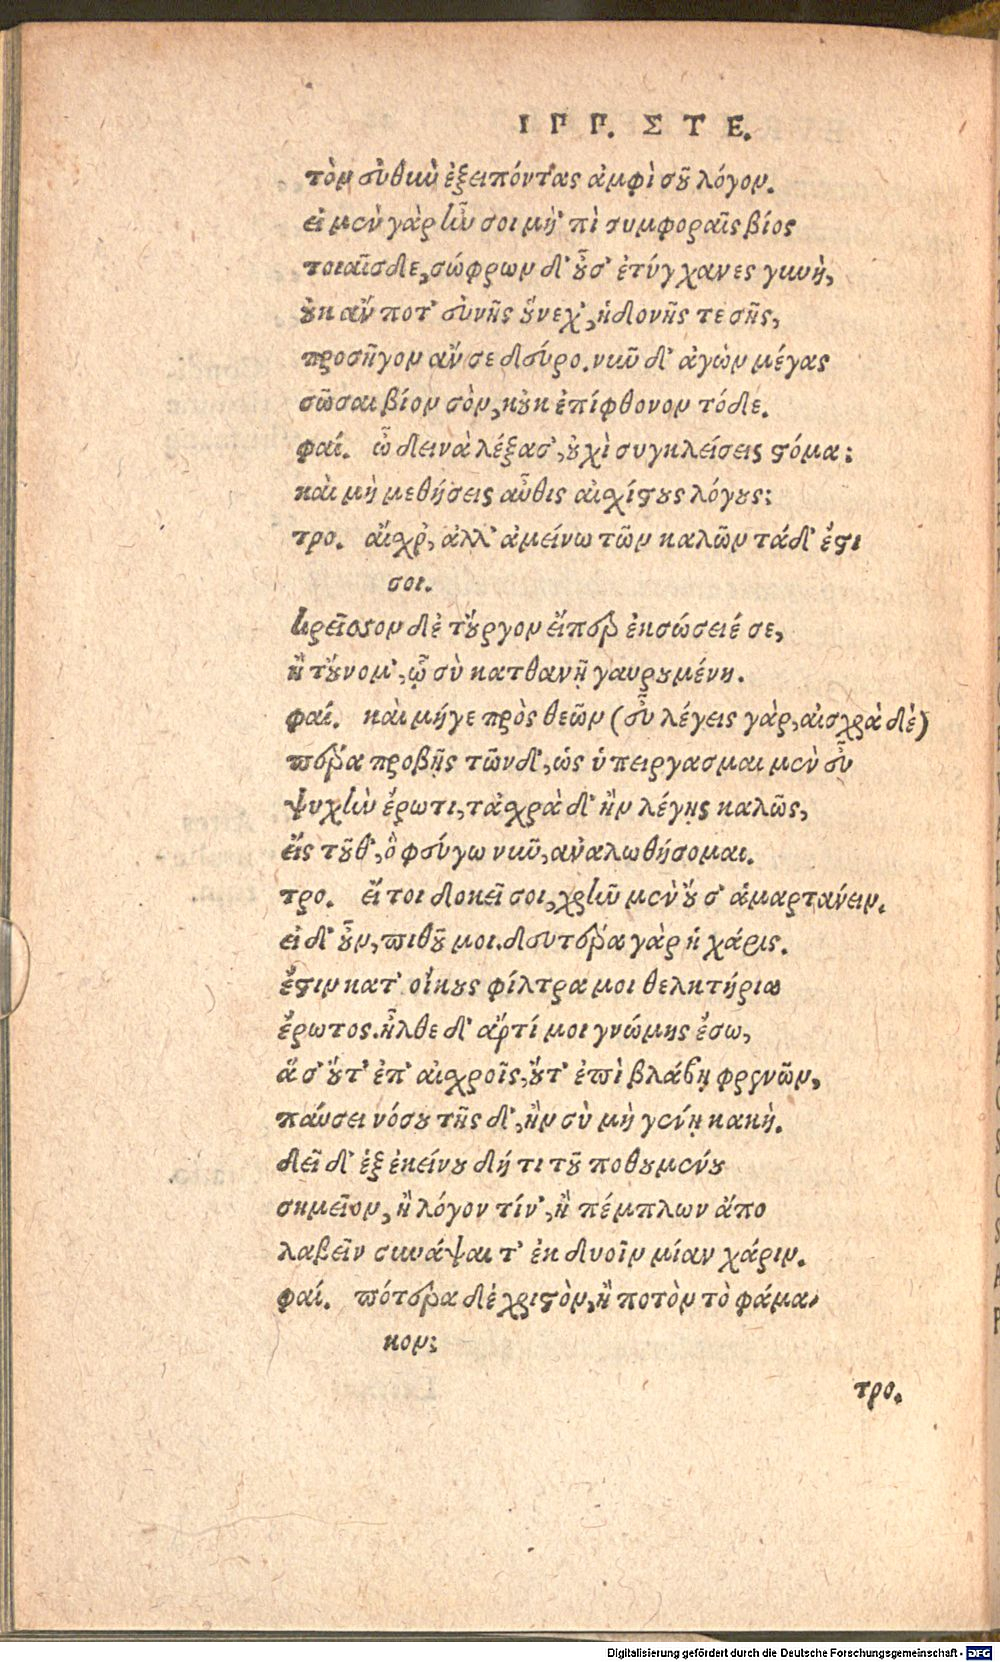 ΙΠΠ. ΣΤΕ.
τὸν εὐθὺν ἐξειπόντας ἀμφὶ σοῦ λόγον.
εἰ μὲν γὰρ ἦν σοι μὴ 'πὶ συμφοραῖς βίος
τοιαῖσδε, σώφρων δ' οὖσ' ἐτύγχανες γυνὴ,
οὐκ ἄν ποτ' εὐνῆς οὕνεχ', ἡδονῆς τε σῆς,
προσῆγον ἄν σε δεύρο. νῦν δ' ἀγὼν μέγας
σῶσαι βίον σὸν, κοὐκ ἐπίφθονον τόδε.
φαί. ὦ δεινὰ λέξασ', οὐχὶ συγκλείσεις στόμα;
καὶ μὴ μεθήσεις αὖθις αἰσχίστους λόγους;
τρο. αἴσχρ', ἀλλ' ἀμείνω τῶν καλῶν τάδ' ἔστι
σοι.
κρεῖσσον δὲ τοὔργον εἴπερ ἐκσώσειέ σε,
ἢ τοὔνομ', ᾧ σὺ κατθανῇ γαυρουμένη.
φαί. καὶ μή γε πρὸς θεῶν (εὖ λέγεις γὰρ, αἰσχρὰ δὲ)
πέρα προβῇς τῶνδ', ὡς ὑπειργασμαι μὲν εὖ
ψυχὴν ἔρωτι, τἀσχρὰ δ' ἢν λέγῃς καλῶς,
εἰς τοῦθ', ὃ φεύγω νῦν, ἀναλωθήσομαι.
τρο. εἴ τοι δοκεῖ σοι, χρῆν μὲν οὔ σ' ἁμαρτάνειν.
εἰ δ' οὖν, πιθοῦ μοι. δευτέρα γὰρ ἡ χάρις.
ἔστιν κατ' οἴκους φίλτρα μοι θελκτήρια
ἔρωτος. ἦλθε δ' ἄρτί μοι γνώμης ἔσω,
ἅ σ' οὔτ' ἐπ' αἰσχροῖς, οὔτ' ἐπὶ βλάβῃ φρενῶν,
παύσει νόσου τῆς δ', ἢν σὺ μὴ γένῃ κακὴ.
δεῖ δ' ἐξ ἐκείνου δή τι τοῦ ποθουμένου
σημεῖον, ἢ λόγον τίν', ἢ πέμπλων ἄπο
λαβεῖν συνάψαι τ' ἐκ δυοῖν μίαν χάριν.
φαί. πότερα δὲ χριστὸν, ἢ ποτὸν τὸ φάμα-
κον;
τρο.
Digitalisierung gefördert durch die Deutsche Forschungsgemeinschaft - DFG